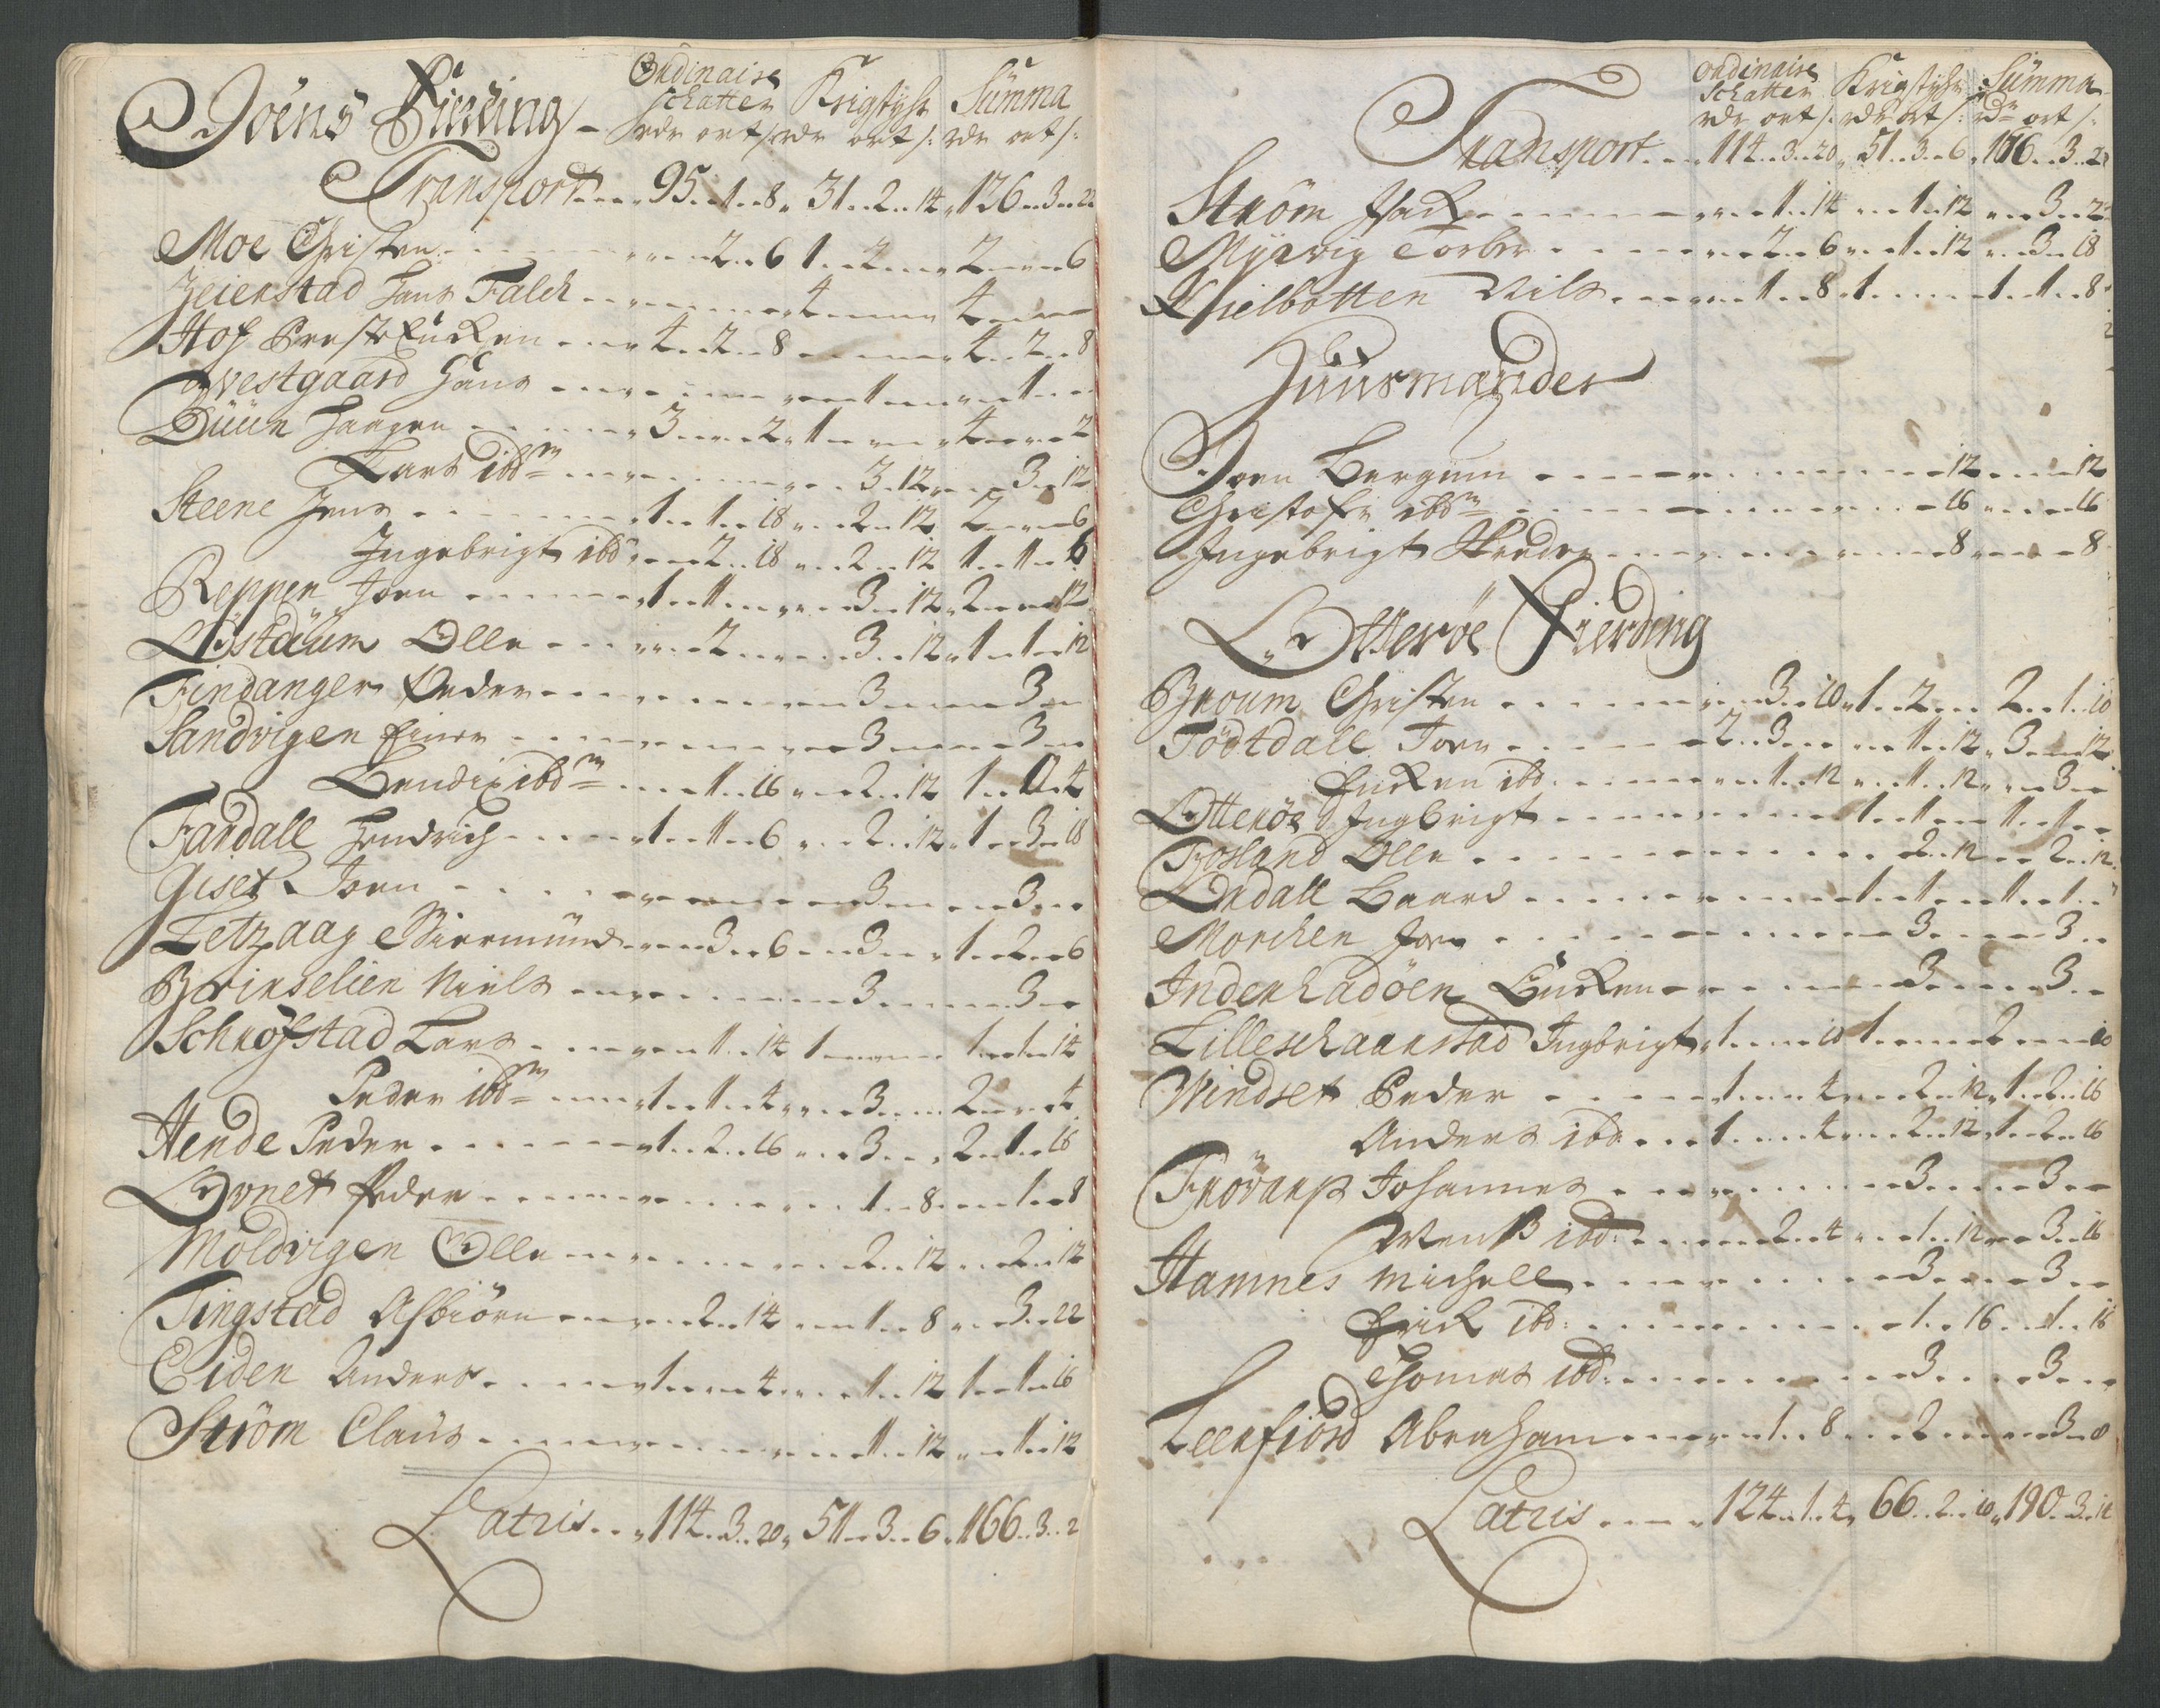 Joens Fierding - Ordinaire Schatter Krigstyhr Summa
rdr ort s: rdr ort s: rdr ort s:
Transport 95 1 8 31 2 14 126 3 22
Moe Christen 2 6 1 2 2 6
Zeierstad Hans Falch 4 4
Hof Preste Encken 4 2 8 4 2 8
Westgaard Hans 1 1
Duun Haagen 3 2 1 4 2
Lars ibdm 3 12 3 12
Steene Jens 1 1 18 2 12 2 6
Ingebrigt ibd 2 18 2 12 1 1 6
Reppen Joen 1 1 3 12 2 12
Østduum Olle 2 3 12 1 1 12
Findanger Peder 3 3
Sandvigen Einer 3 3
Bendix ibdm 1 16 2 12 1 0 4
Fardall Hendrich 1 1 6 2 12 1 3 18
Giset Joen 3 3
Letzaag Biermünd 3 6 3 1 2 6
Brinselien Niels 3 3
Schröfstad Lars 1 14 1 1 1 14
Peder ibdm 1 1 4 3 2 4
Hende Peder 1 2 16 3 2 1 16
Qvnet Peder 1 8 1 8
Moldvigen Olle 2 12 2 12
Tingstad Asbiörn 2 14 1 8 3 22
Eiden Anders 1 4 1 12 1 1 16
Ström Claus 1 12 1 12
Latris 114 3 20 51 3 6 166 3 2
Ordinaire Schatter Krigstyhr Summa
rdr ort s: rdr ort s: rdr ort s:
Transport 114 3 20 51 3 6 166 3 2
Ström Isack 1 14 1 12 3 2
Myrvig Torber 2 6 1 12 3 18
Kielbotten Nils 1 8 1 1 1 8
Huusmænder
Joen Bergum 12 12
Christofer ibdm 16 16
Ingebrigt Skreder 8 8
Otterøe Fierding
Broum Christen 3 10 1 2 2 1 10
Tödtdall Joen 2 3 1 12 3 12
Encken ibd: 1 12 1 12 3
Otterøe Ingbrigt 1 1 1 1
Fosland Olle 2 12 2 12
Ordall Baard 1 1 1 1
Morchen Joen 3 3
Inderhadöen Encken 3 3
Lilleschaarstad Ingbrigt 1 10 1 2 10
Windset Peder 1 4 2 12 1 2 16
Anders ibd 1 4 2 12 1 2 16
Frövarp Johannes 3 3
Wenß ibd: 2 4 1 12 3 16
Hamnes Michell 3 3
Erick ibd: 1 16 1 16
Thomas ibd: 3 3
Leerfiord Abraham 1 8 2 3 8
Latris 124 1 4 66 2 10 190 3 14